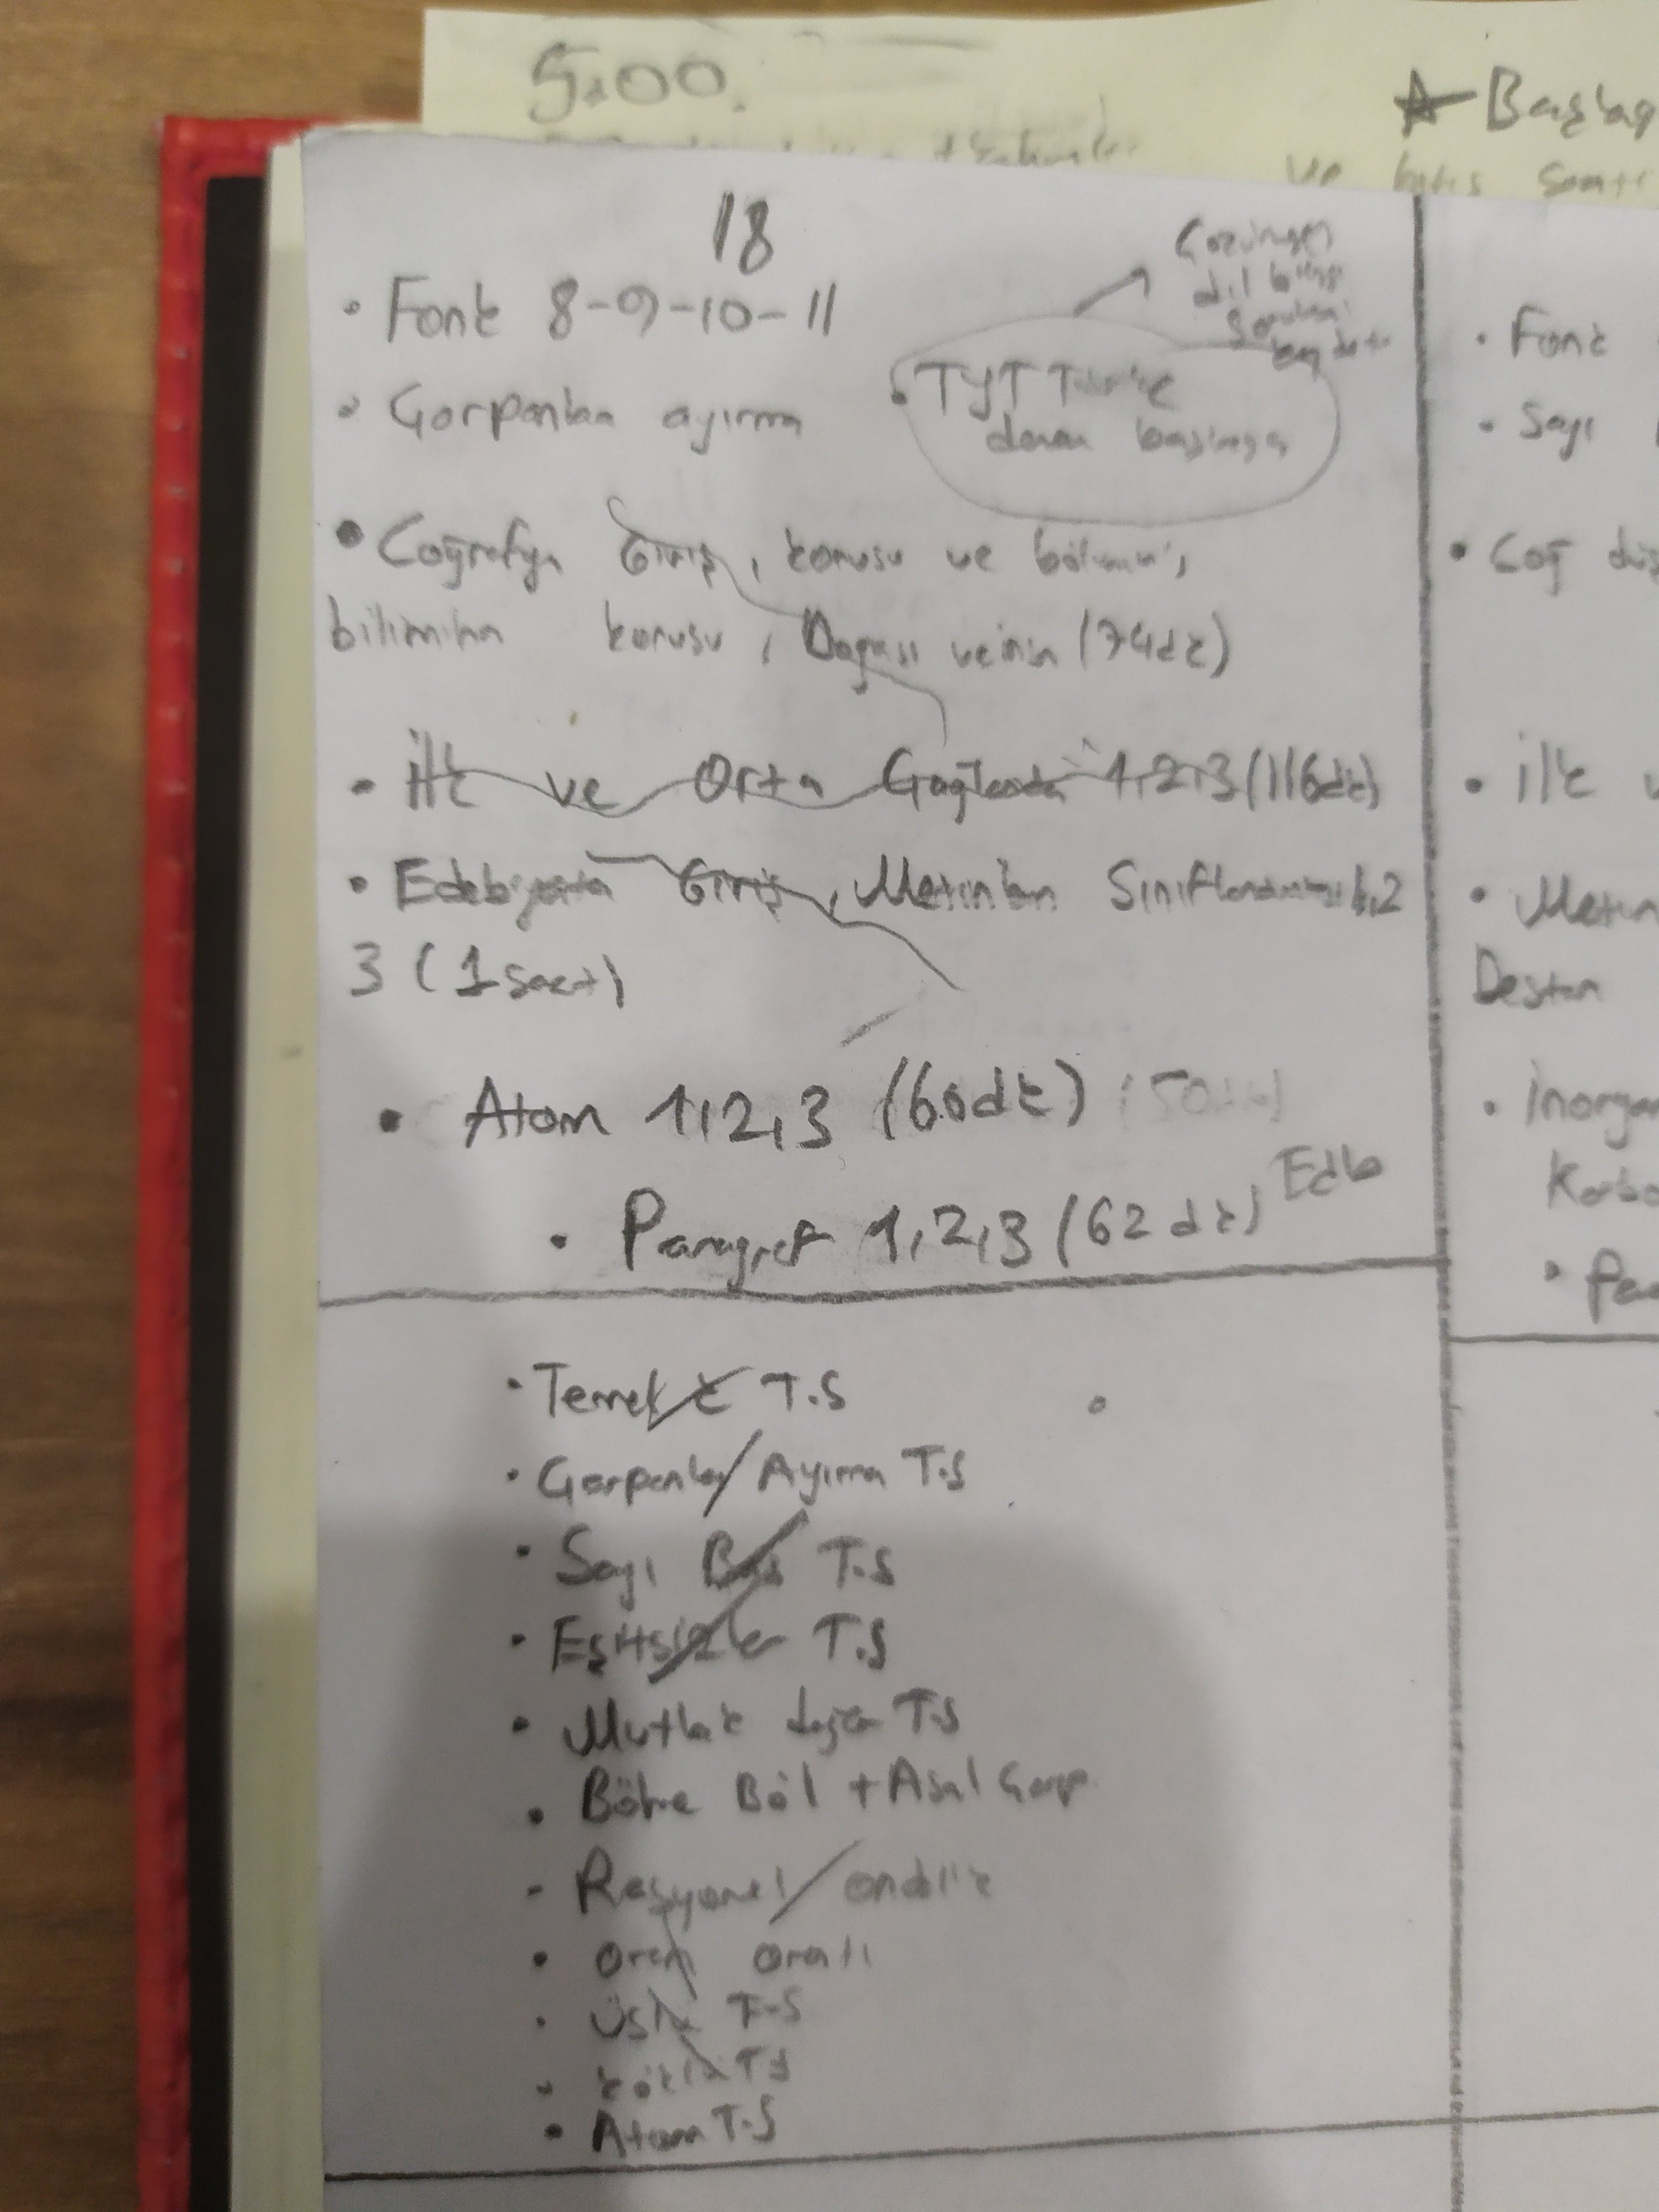 5.00
ve bitiş saati
18
• Fonk 8-9-10-11
• Çarpanları ayırma
• TYT Türkçe
deneme
dil bilgisi
• Coğrafya Giriş, konusu ve bölümü,
bilimi konusu, Doğası ve insan (74dk)
• İlk ve Orta Çağlarda 1,2,3 (116dk)
• Edebiyata Giriş, Metinlerin Sınıflandırılması 1,2
3 (1 saat)
• Atom 1,2,3 (60dk) (50dk)
• Paragraf 1,2,3 (62dk) Edb
• Temel k T.S
• Çarpanla Ayırma T.S
• Sayı Bas T.S
• Eşitsizlik T.S
• Mutlak değer T.S
• Bölme Böl + Asal Çarp.
- Rasyonel / ondalık
• Oran orantı
• Üslü T.S
• köklü T.S
• Atom T.S
• Fonk
• Sayı
• Coğ
• İlk
• Metin
Destan